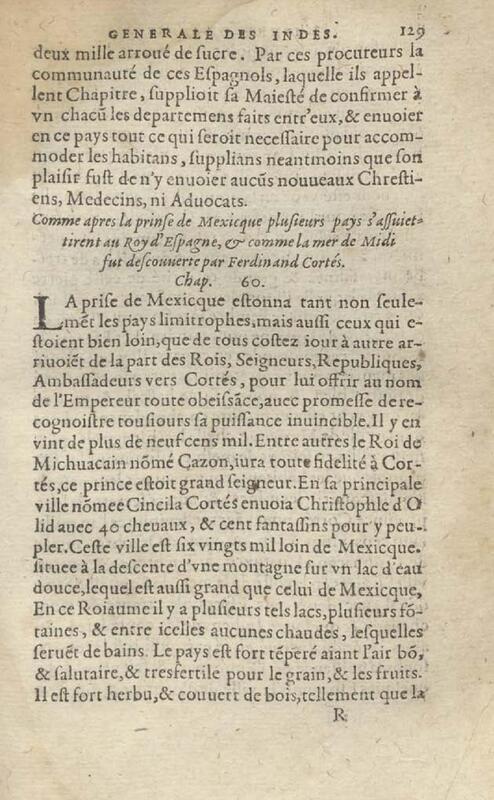 GENERALE DES INDES. 129
deux mille arroué de sucre. Par ces procureurs la
communauté de ces Espagnols, laquelle ils appel-
lent Chapitre, supplioit sa Maiesté de confirmer à
vn chacũ les departemens faits entr'eux, & enuoier
en ce pays tout ce qui seroit necessaire pour accom-
moder les habitans, supplians neantmoins que son
plaisir fust de n'y enuoier aucũs nouueaux Chresti-
ens, Medecins, ni Aduocats.
Comme apres la prinse de Mexicque plusieurs pays s'assuiet-
tirent au Roy d'Espagne, & comme la mer de Midi
fut descouuerte par Ferdinand Cortés.
Chap. 60.
LA prise de Mexicque estonna tant non seule-
mẽt les pays limitrophes, mais aussi ceux qui e-
stoient bien loin, que de tous costez iour à autre ar-
riuoiẽt de la part des Rois, Seigneurs, Republiques,
Ambassadeurs vers Cortés, pour lui offrir au nom
de l'Empereur toute obeissãce, auec promesse de re-
cognoistre tousiours sa puissance inuincible. Il y en
vint de plus de neuf cens mil. Entre autres le Roi de
Michuacain nõmé Cazon, iura toute fidelité à Cor-
tés, ce prince estoit grand seigneur. En sa principale
ville nõmee Cincila Cortés enuoia Christophle d'O
lid auec 40 cheuaux, & cent fantassins pour y peu-
pler. Ceste ville est six vingts mil loin de Mexicque.
situee à la descente d'vne montagne sur vn lac d'eau
douce, lequel est aussi grand que celui de Mexicque,
En ce Roiaume il y a plusieurs tels lacs, plusieurs fõ-
taines, & entre icelles aucunes chaudes, lesquelles
seruẽt de bains. Le pays est fort tẽperé aiant l'air bõ,
& salutaire, & tresfertile pour le grain, & les fruits.
Il est fort herbu, & couuert de bois, tellement que la
R